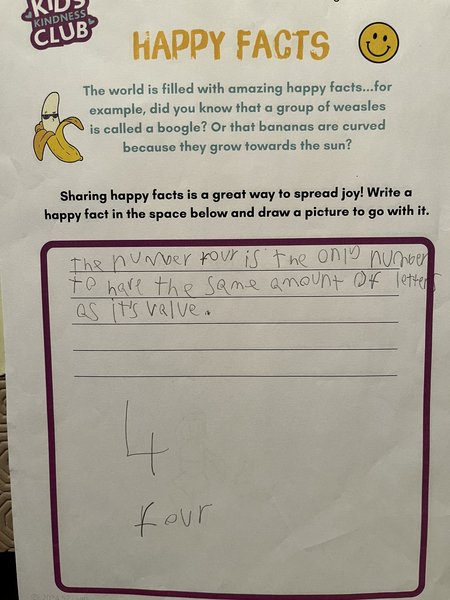 KIDS
KINDNESS
CLUB
HAPPY FACTS
The world is filled with amazing happy facts...for
example, did you know that a group of weasles
is called a boogle? Or that bananas are curved
because they grow towards the sun?
Sharing happy facts is a great way to spread joy! Write a
happy fact in the space below and draw a picture to go with it.
The number four is the only number
to have the same amount of letters
as it's value.
4
four